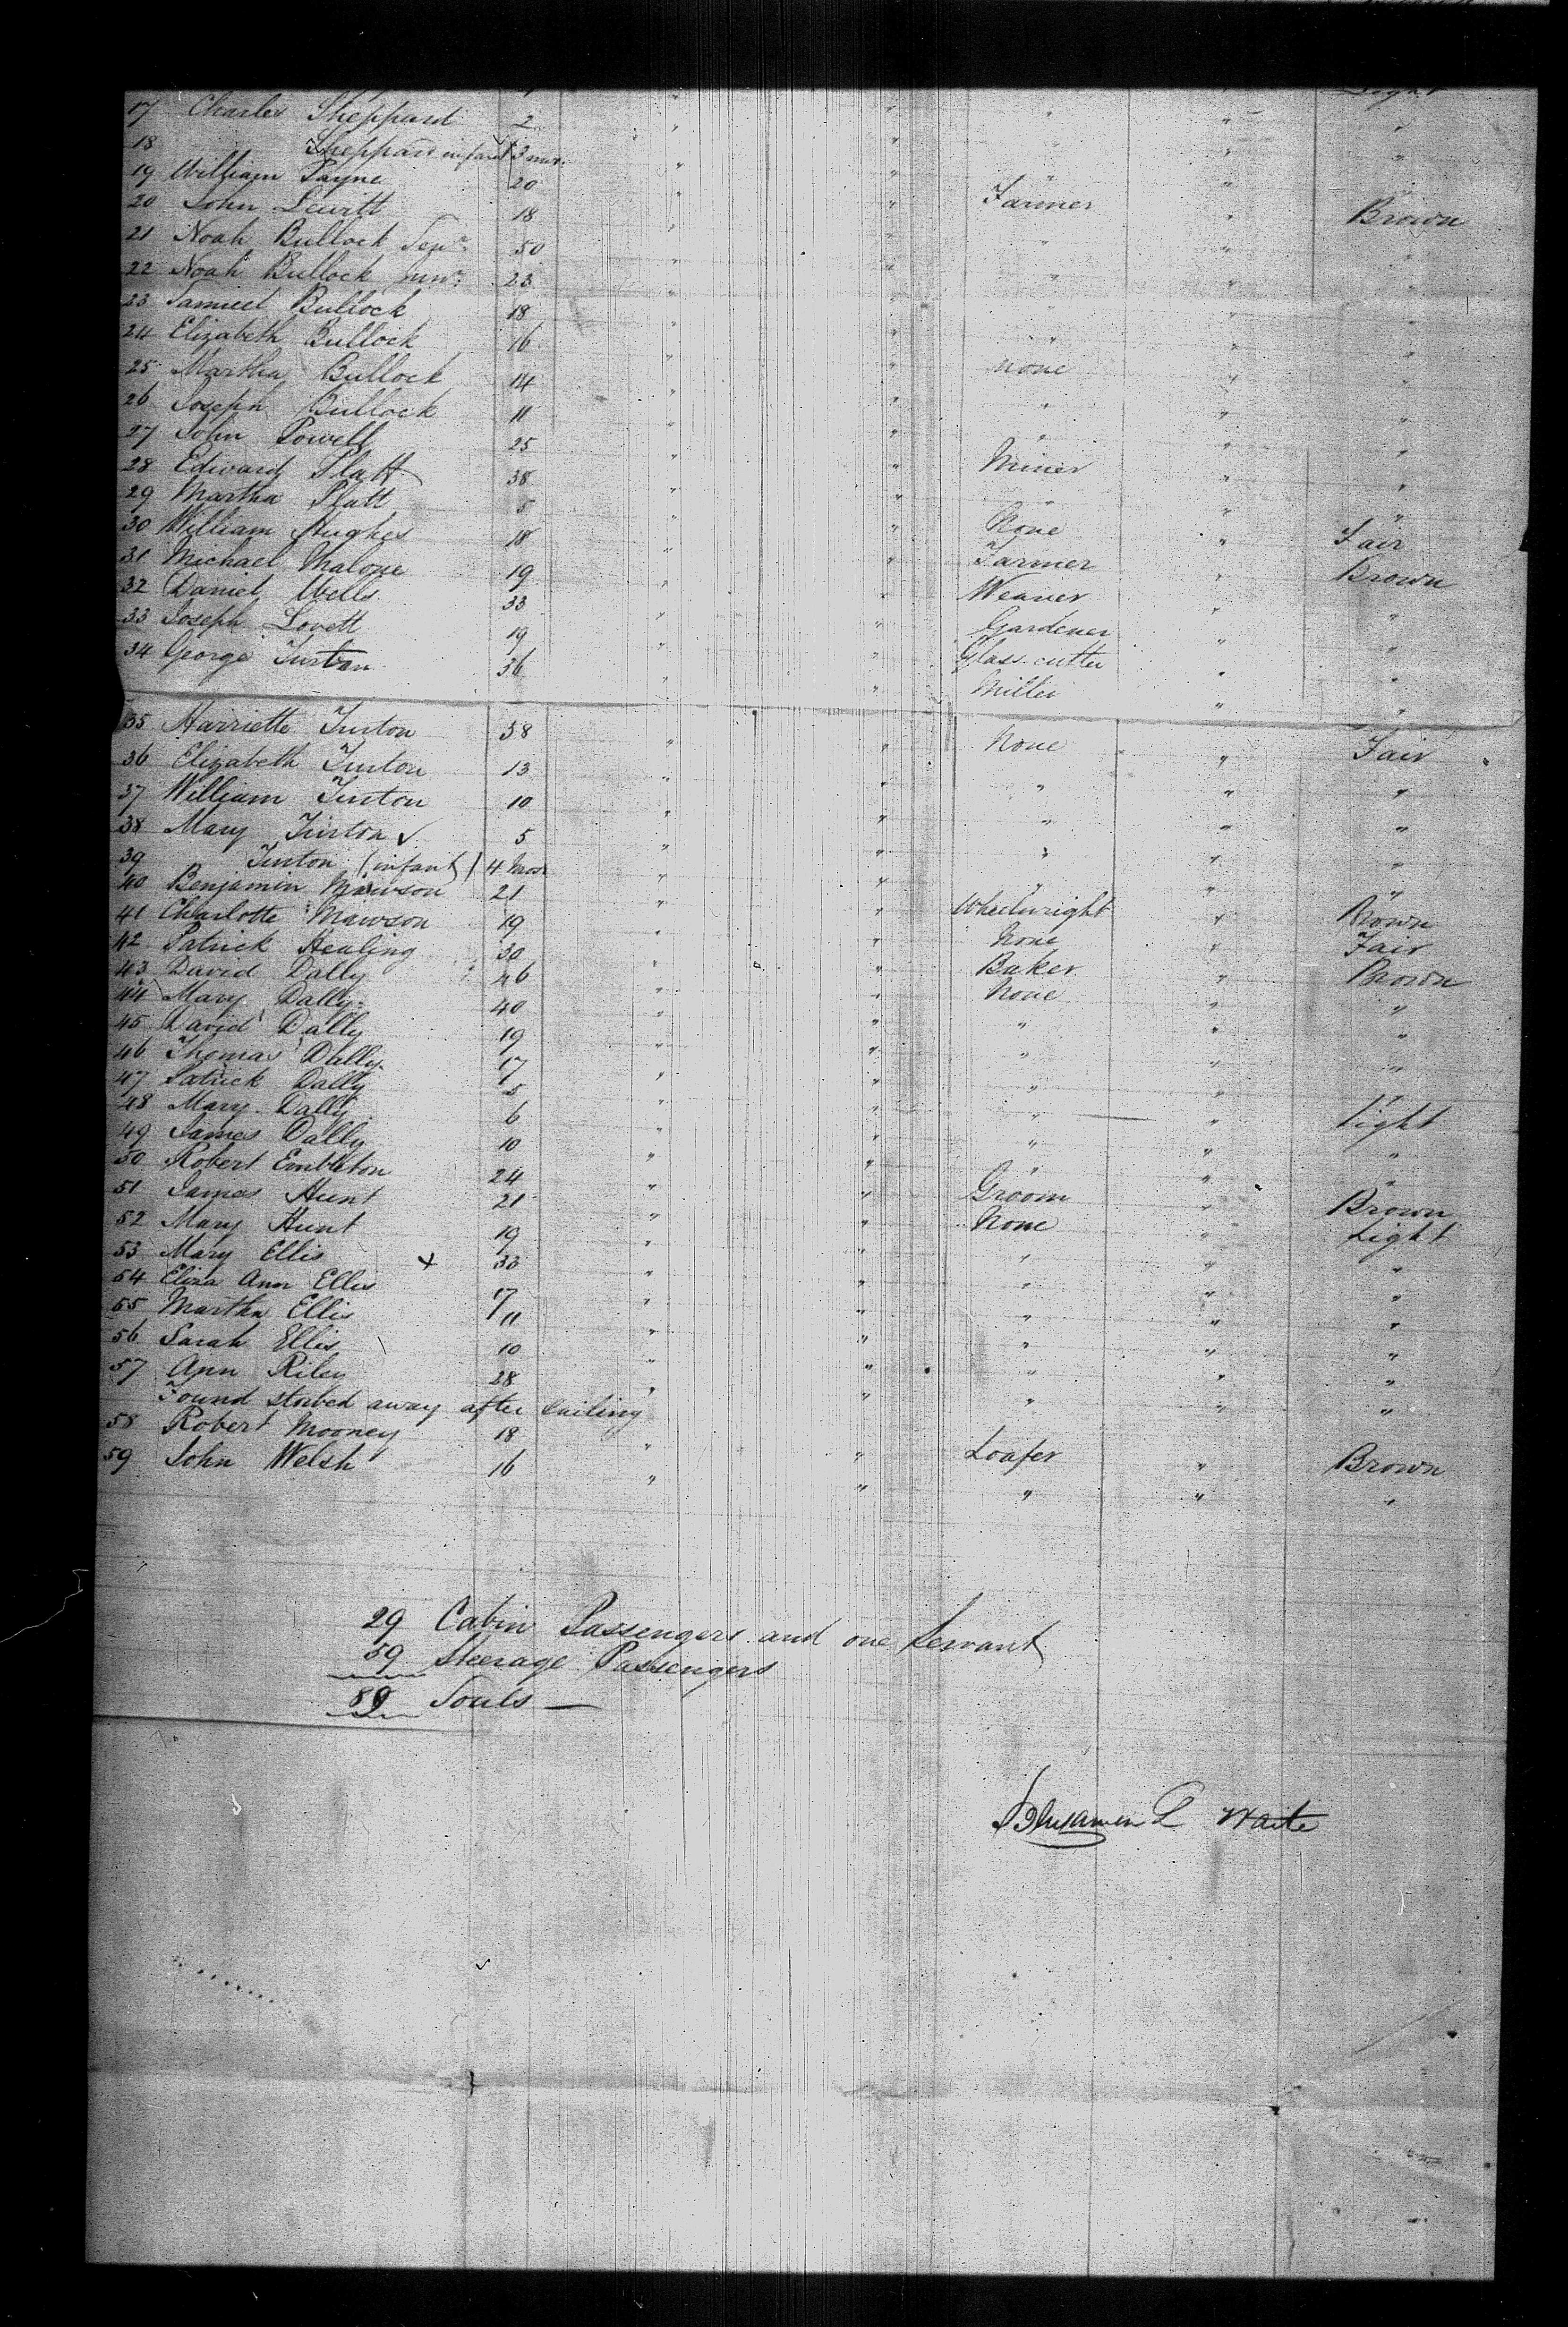 Light
17 Charles Sheppard 2 " " " " "
18 Sheppard infant 3 mos. " " " " "
19 William Payne 20 " " Farmer " Brown
20 John Lewitt 18 " " " " "
21 Noah Bullock Senr. 50 " " " " "
22 Noah Bullock Junr. 23 " " " " "
23 Samuel Bullock 18 " " " " "
24 Elizabeth Bullock 16 " " None " "
25 Martha Bullock 14 " " " " "
26 Joseph Bullock 11 " " " " "
27 John Powell 25 " " Miner " "
28 Edward Platt 38 " " " " "
29 Martha Platt 5 " " None " Fair
30 William Hughes 18 " " Farmer " Brown
31 Michael Malone 19 " " Weaver " "
32 Daniel Wells 33 " " Gardener " "
33 Joseph Lovett 19 " " Glass cutter " "
34 George Turton 36 " " Miller " "
35 Harriette Turton 38 " " None " Fair
36 Elizabeth Turton 13 " " " " "
37 William Turton 10 " " " " "
38 Mary Turton 5 " " " " "
39 Turton (infant) 4 Mos " " " " "
40 Benjamin Mawson 21 " " Wheelwright " Brown
41 Charlotte Mawson 19 " " None " Fair
42 Patrick Healing 30 " " Baker " Brown
43 David Dally 46 " " None " "
44 Mary Dally 40 " " " " "
45 David Dally 19 " " " " "
46 Thomas Dally 17 " " " " "
47 Patrick Dally 5 " " " " Light
48 Mary Dally 6 " " " " "
49 James Dally 10 " " " " "
50 Robert Embleton 24 " " Groom " Brown
51 James Hunt 21 " " None " Light
52 Mary Hunt 19 " " " " "
53 Mary Ellis + 33 " " " " "
54 Eliza Ann Ellis 17 " " " " "
55 Martha Ellis 11 " " " " "
56 Sarah Ellis 10 " " " " "
57 Ann Riley 28 " " " " "
Found stowed away after sailing
58 Robert Mooney 18 " " Loafer " Brown
59 John Welsh 16 " " " " "
29 Cabin Passengers and one Servant
59 Steerage Passengers
89 Souls —
Benjamin L Waite